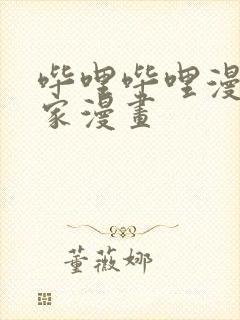 哔哩哔哩漫
家漫畫
董薇娜